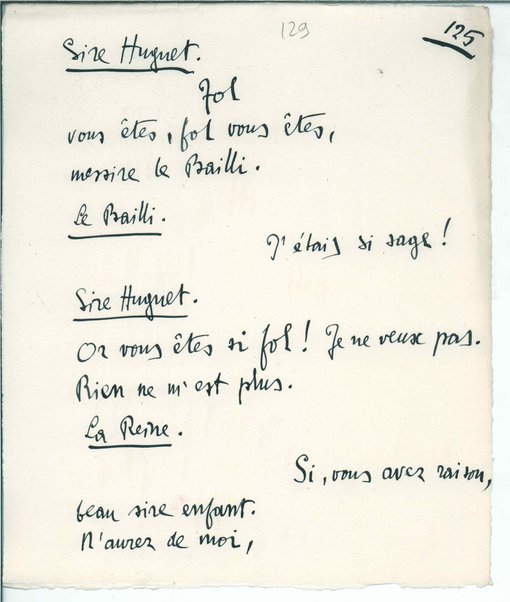 129
125
Sire Huguet.
Fol
vous êtes, fol vous êtes,
messire le Bailli.
Le Bailli.
J'étais si sage!
Sire Huguet.
Or vous êtes si fol! Je ne veux pas.
Rien ne m'est plus.
La Reine.
Si, vous avez raison,
beau sire enfant.
N'aurez de moi,